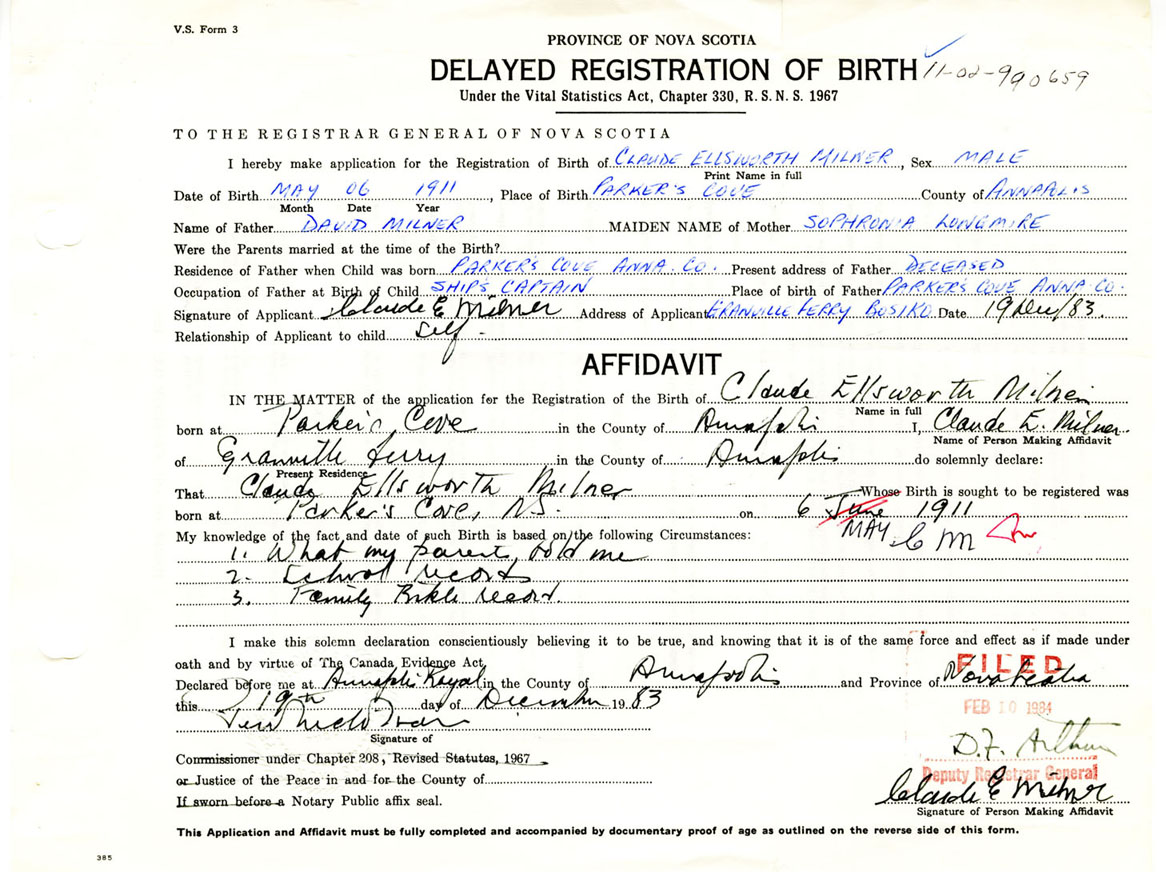 V.S. Form 3
PROVINCE OF NOVA SCOTIA
DELAYED REGISTRATION OF BIRTH 11-02-990659
Under the Vital Statistics Act, Chapter 330, R. S. N. S. 1967
TO THE REGISTRAR GENERAL OF NOVA SCOTIA
I hereby make application for the Registration of Birth of CLAUDE ELLSWORTH MILNER, Sex MALE
Print Name in full
Date of Birth MAY 06 1911, Place of Birth PARKER'S COVE County of ANNAPOLIS
Month Date Year
Name of Father DAVID MILNER MAIDEN NAME of Mother SOPHRONIA LONGMIRE
Were the Parents married at the time of the Birth?
Residence of Father when Child was born PARKER'S COVE ANNA. CO. Present address of Father DECEASED
Occupation of Father at Birth of Child SHIP'S CAPTAIN Place of birth of Father PARKER'S COVE ANNA. CO.
Signature of Applicant Claude E Milner Address of Applicant GRANVILLE FERRY BOS1K0 Date 19 Dec/83.
Relationship of Applicant to child Self -
AFFIDAVIT
IN THE MATTER of the application for the Registration of the Birth of Claude Ellsworth Milner
Name in full
born at Parker's Cove in the County of Annapolis I, Claude E. Milner
Name of Person Making Affidavit
of Granville Ferry in the County of Annapolis do solemnly declare:
Present Residence
That Claude Ellsworth Milner Whose Birth is sought to be registered was
born at Parker's Cove, N.S. on 6 June 1911
MAY C M
My knowledge of the fact and date of such Birth is based on the following Circumstances:
1. What my parents told me
2. School records
3. Family Bible record.
I make this solemn declaration conscientiously believing it to be true, and knowing that it is of the same force and effect as if made under
oath and by virtue of The Canada Evidence Act,
FILED
Declared before me at Annapolis Royal in the County of Annapolis and Province of Nova Scotia
this 19th day of December 1983
FEB 10 1984
Signature of
D.F. Arthur
Commissioner under Chapter 208, Revised Statutes, 1967
Deputy Registrar General
or Justice of the Peace in and for the County of
Claude E Milner
If sworn before a Notary Public affix seal.
Signature of Person Making Affidavit
This Application and Affidavit must be fully completed and accompanied by documentary proof of age as outlined on the reverse side of this form.
385